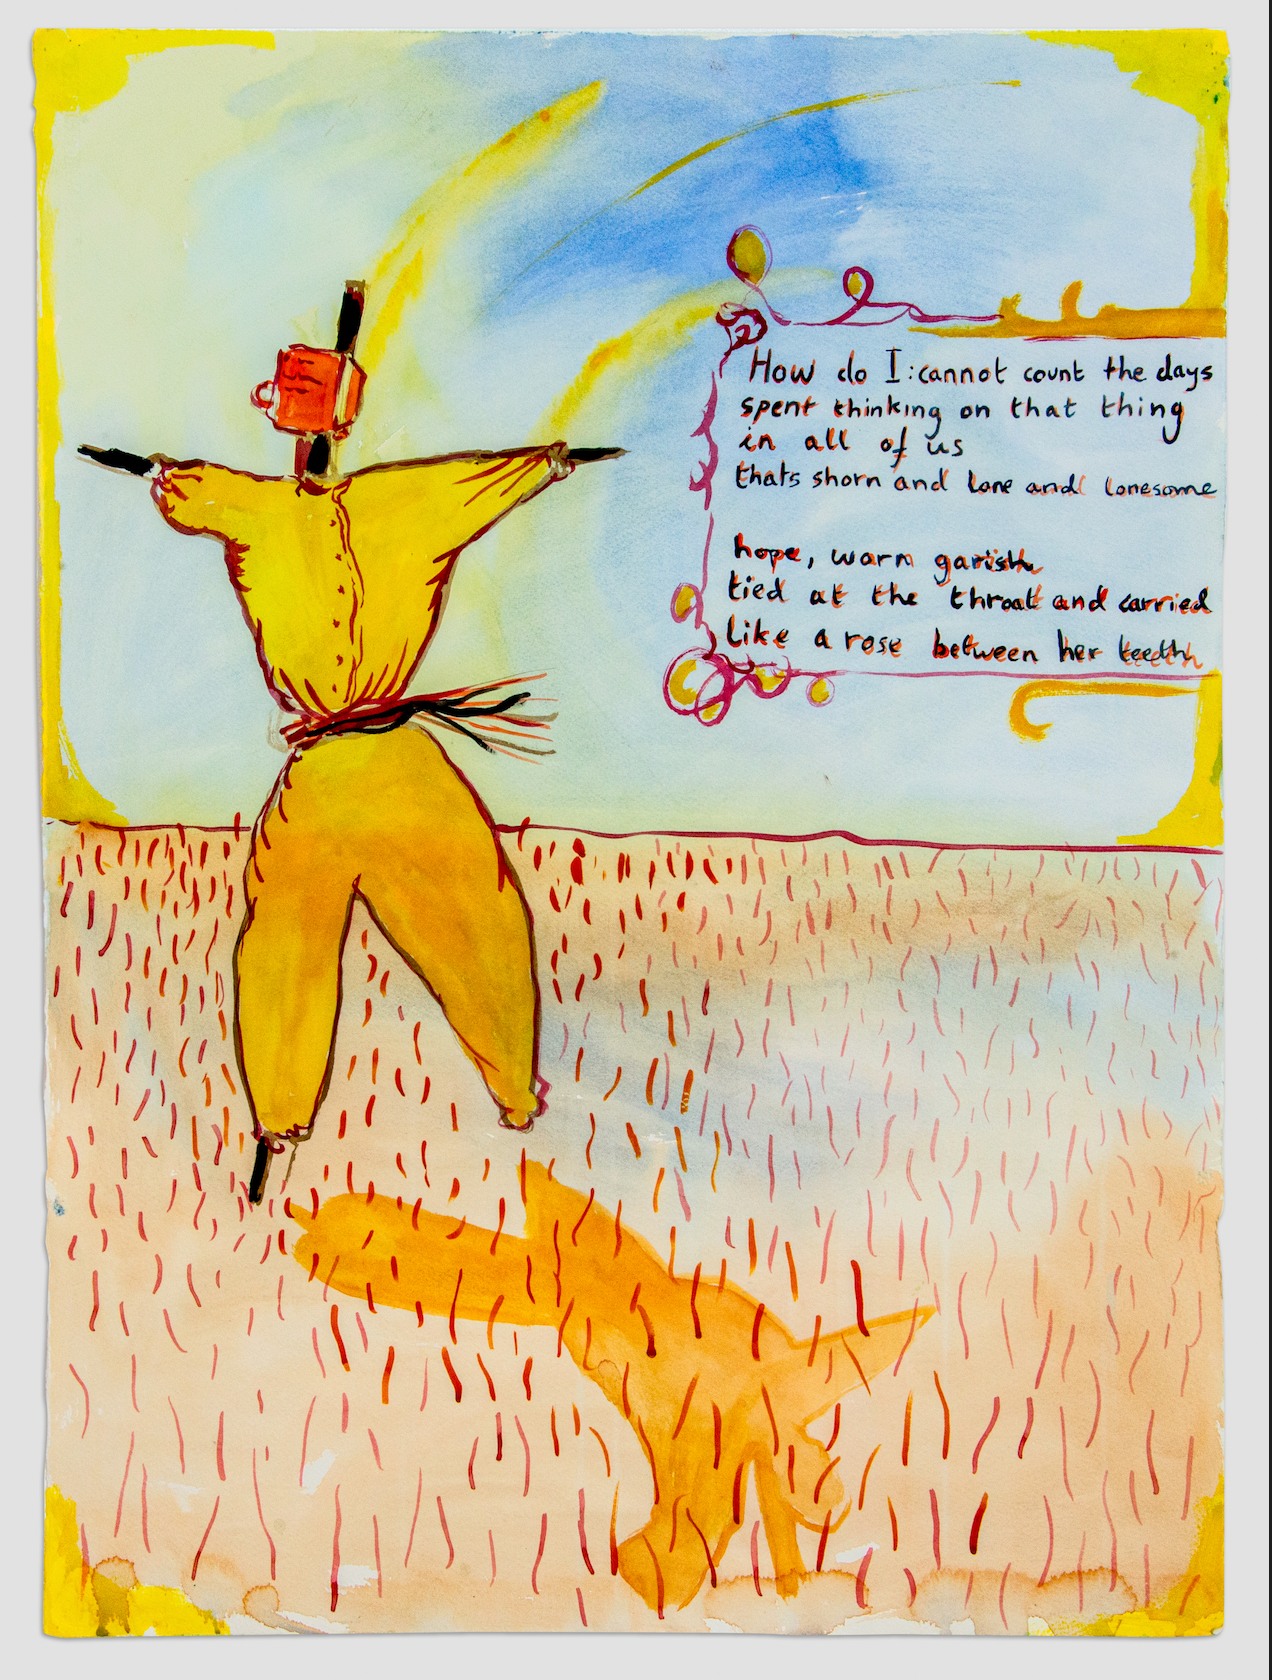 How do I: cannot count the days
spent thinking on that thing
in all of us
thats shorn and lone and lonesome
hope, warm garish
tied at the throat and carried
like a rose between her teeth